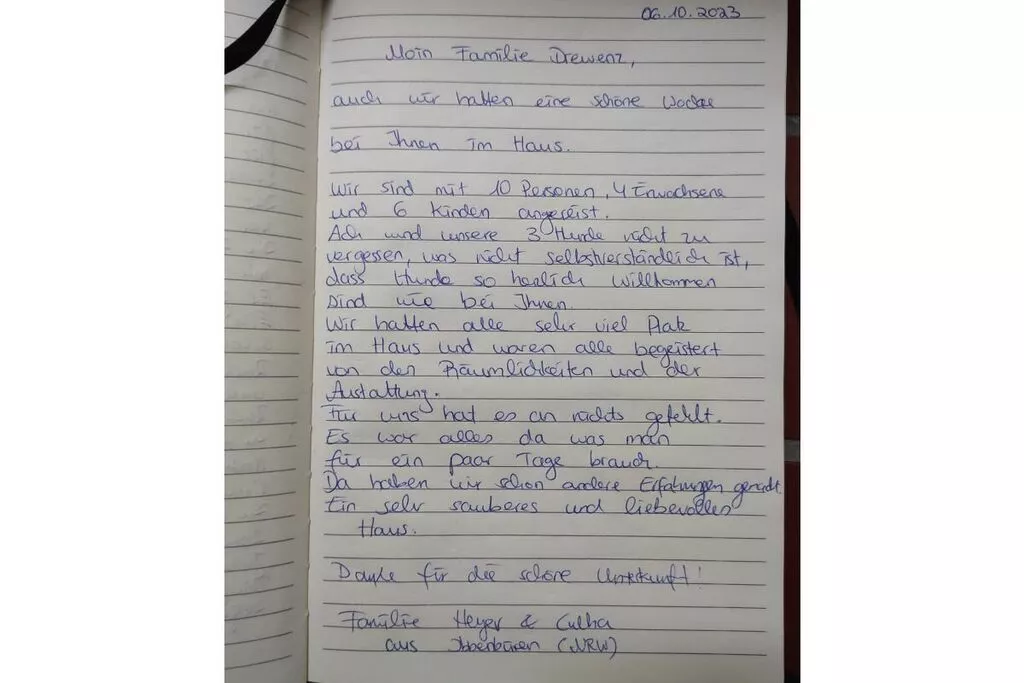 06.10.2023
Moin Familie Drewenz,
auch wir hatten eine schöne Woche
bei Ihnen im Haus.
Wir sind mit 10 Personen, 4 Erwachsene
und 6 Kinden angereist.
Ach und unsere 3 Hunde nicht zu
vergessen, was nicht selbstverständlich ist,
dass Hunde so herzlich Willkommen
sind wie bei Ihnen.
Wir hatten alle sehr viel Platz
im Haus und waren alle begeistert
von den Räumlichkeiten und der
Austattung.
Für uns hat es an nichts gefehlt.
Es war alles da was man
für ein paar Tage brauch.
Da haben wir schon andere Erfahrungen gemacht
Ein sehr sauberes und liebevolles
Haus.
Danke für die schöne Unterkunft!
Familie Heyer & Culha
aus Ibbenbüren (NRW)